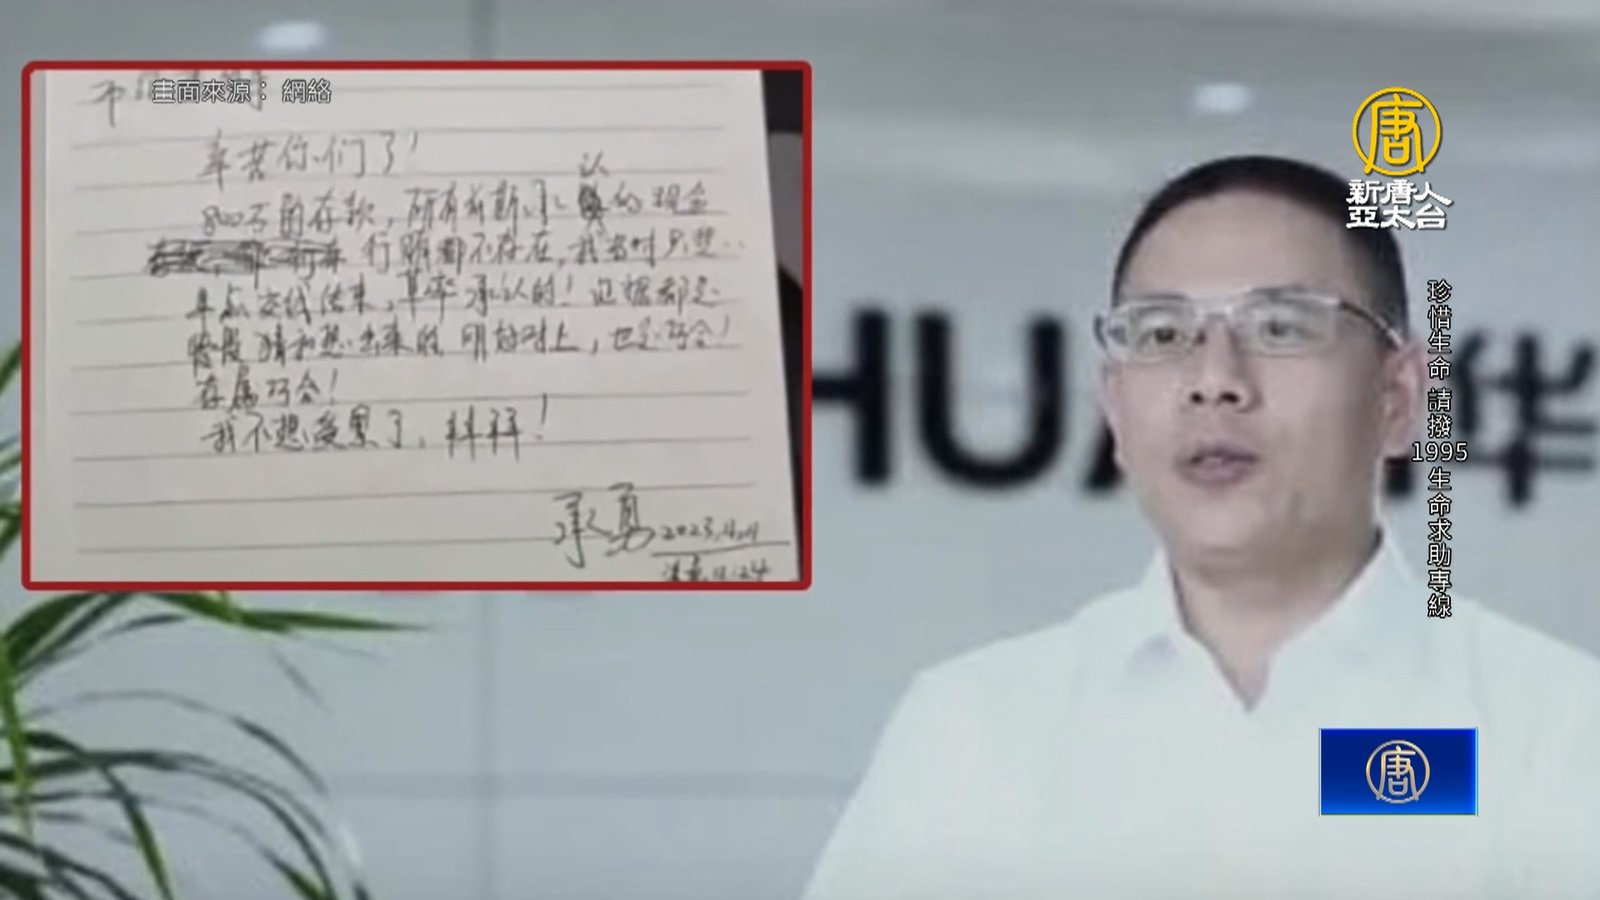 畫面來源：網絡
辛苦你们了！
800万的存款，所有前期承认的现金
行贿都不存在，我当时只想
早点交代结束，草率承认的！证据都是
猜和想出来的 明 对上，也是巧合！
存属巧合！
我不想受累了，拜拜！
承勇 2023.4.11
4:24
唐
新唐人
亞太台
HUA 华
珍惜生命 請撥1995生命求助專線
唐